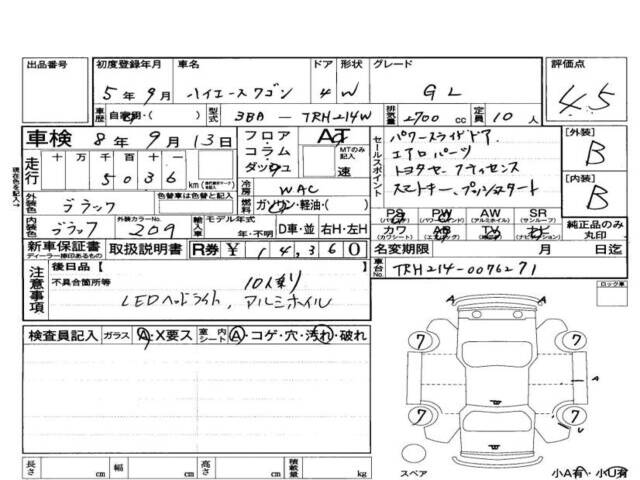 出品番号 初度登録年月 車名 ドア 形状 グレード 評価点
5年9月 ハイエースワゴン 4 W GL 4.5
車歴 自家用・( ) 型式 3BA-TRH214W 排気量 2700cc 定員 10人
車検 8年9月13日 フロア コラム ダッシュ AT MTのみ記入 速
セールスポイント パワースライドドア、
エアロパーツ
トヨタセーフティセンス
スマートキー、プッシュスタート
[外装] B
[内装] B
走行 十 万 千 百 十 一
5036 km
冷房 WAC
現在色を記入→
外装色 ブラック 色替車は色替と記入
燃料 ガソリン・軽油・( )
内装色 ブラック 外装カラーNo. 209 輸入車 モデル年式 年・不明 D車・並 右H・左H
PS (パワステ) PW (パワーウインド) AW (アルミホイル) SR (サンルーフ)
カワ (カワシート) AB (エアバッグ) TV ナビ (ナビゲーション)
純正品のみ丸印
新車保証書 ディーラー捺印あるもの 取扱説明書 R券 ¥14,360
名変期限 月 日迄
注意事項 後日品【
不具合箇所等 10人乗り
LEDヘッドライト、アルミホイル
車台No. TRH214-0076271
ロック車
検査員記入 ガラス A・X要ス 室内シート A・コゲ・穴・汚れ・破れ
7 7
7 7
A
U
スペア
小A有・小U有
長さ cm 幅 cm 高さ cm 積載量 kg